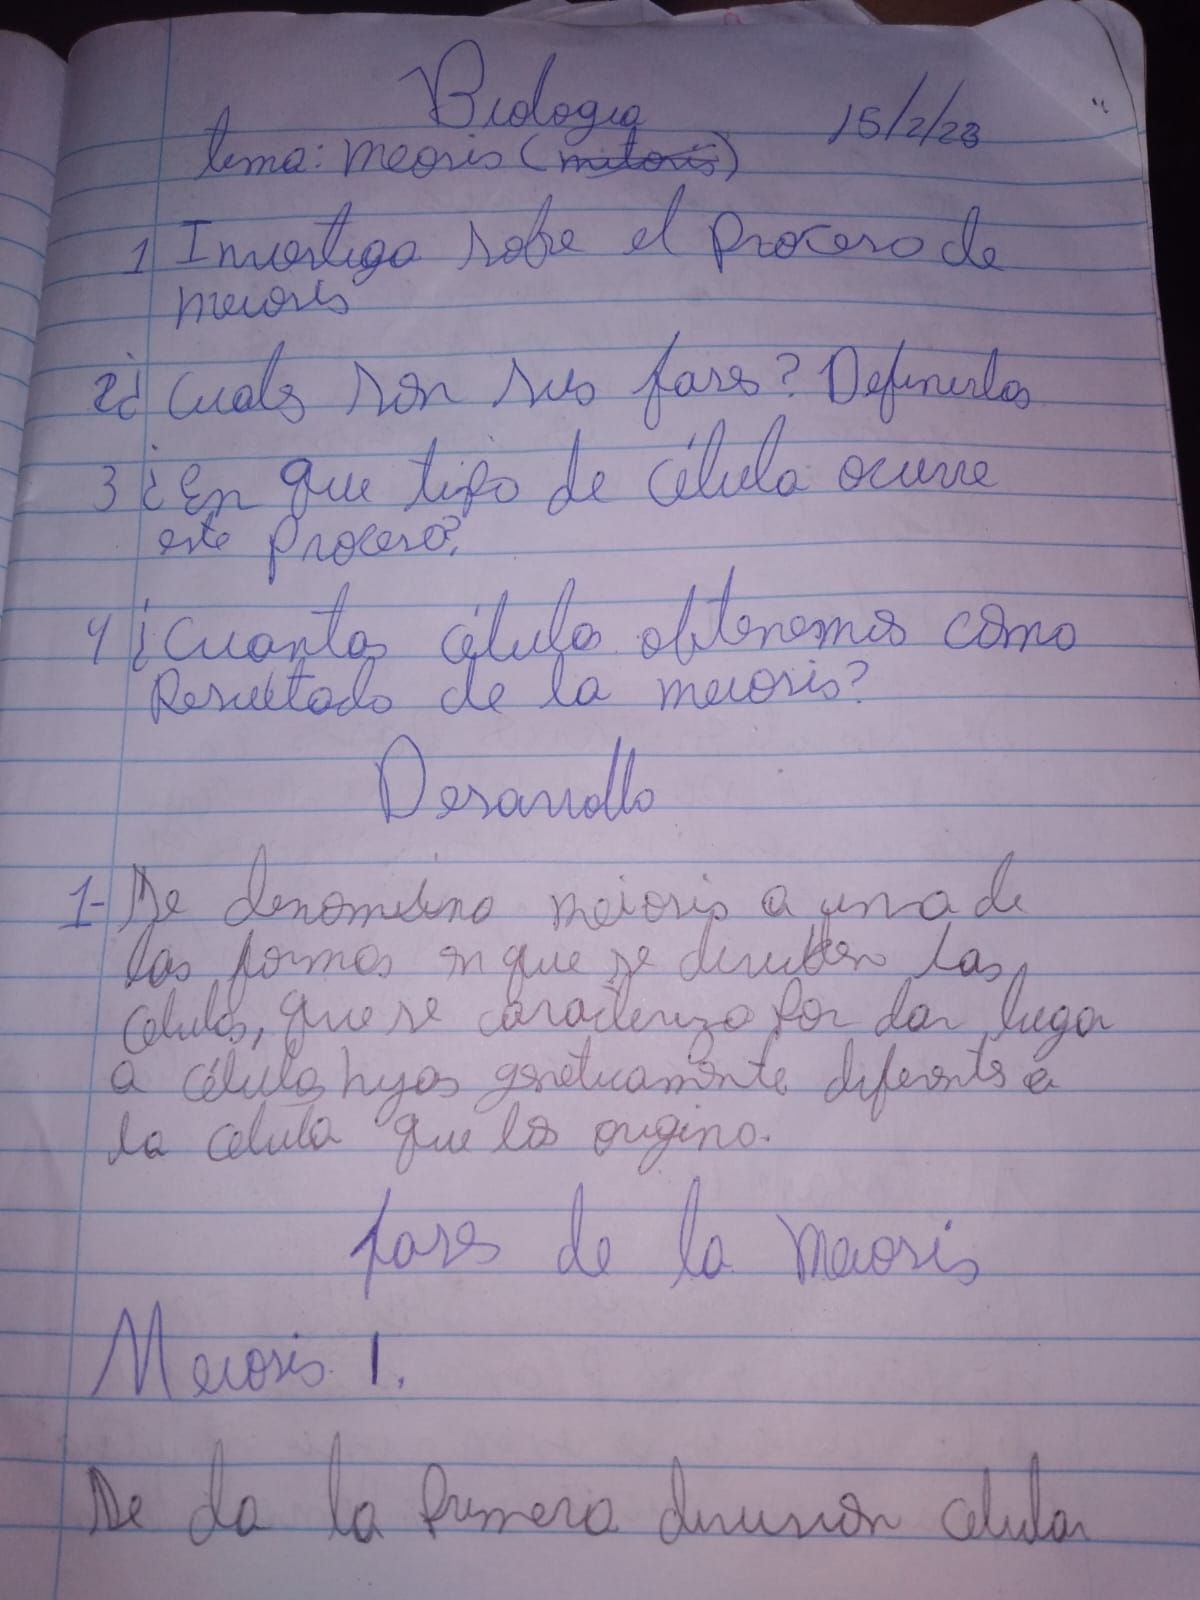 Biologia
15/2/23
tema: meosis (mitosis)
1 Investiga sobre el proceso de
meiosis
2 ¿Cuales son sus fases? Definirlas
3 ¿En que tipo de célula ocurre
este proceso?
4 ¿Cuantas célula obtenemos cómo
Resultado de la meiosis?
Desarrollo
1- Se denomina meiosis a una de
las formas en que se dividen las
celulas, que se caracteriza por dar lugar
a célula hijas genéticamente diferente a
la celula que las origino.
fases de la meiosis
Meiosis 1.
Se da la primera división celular